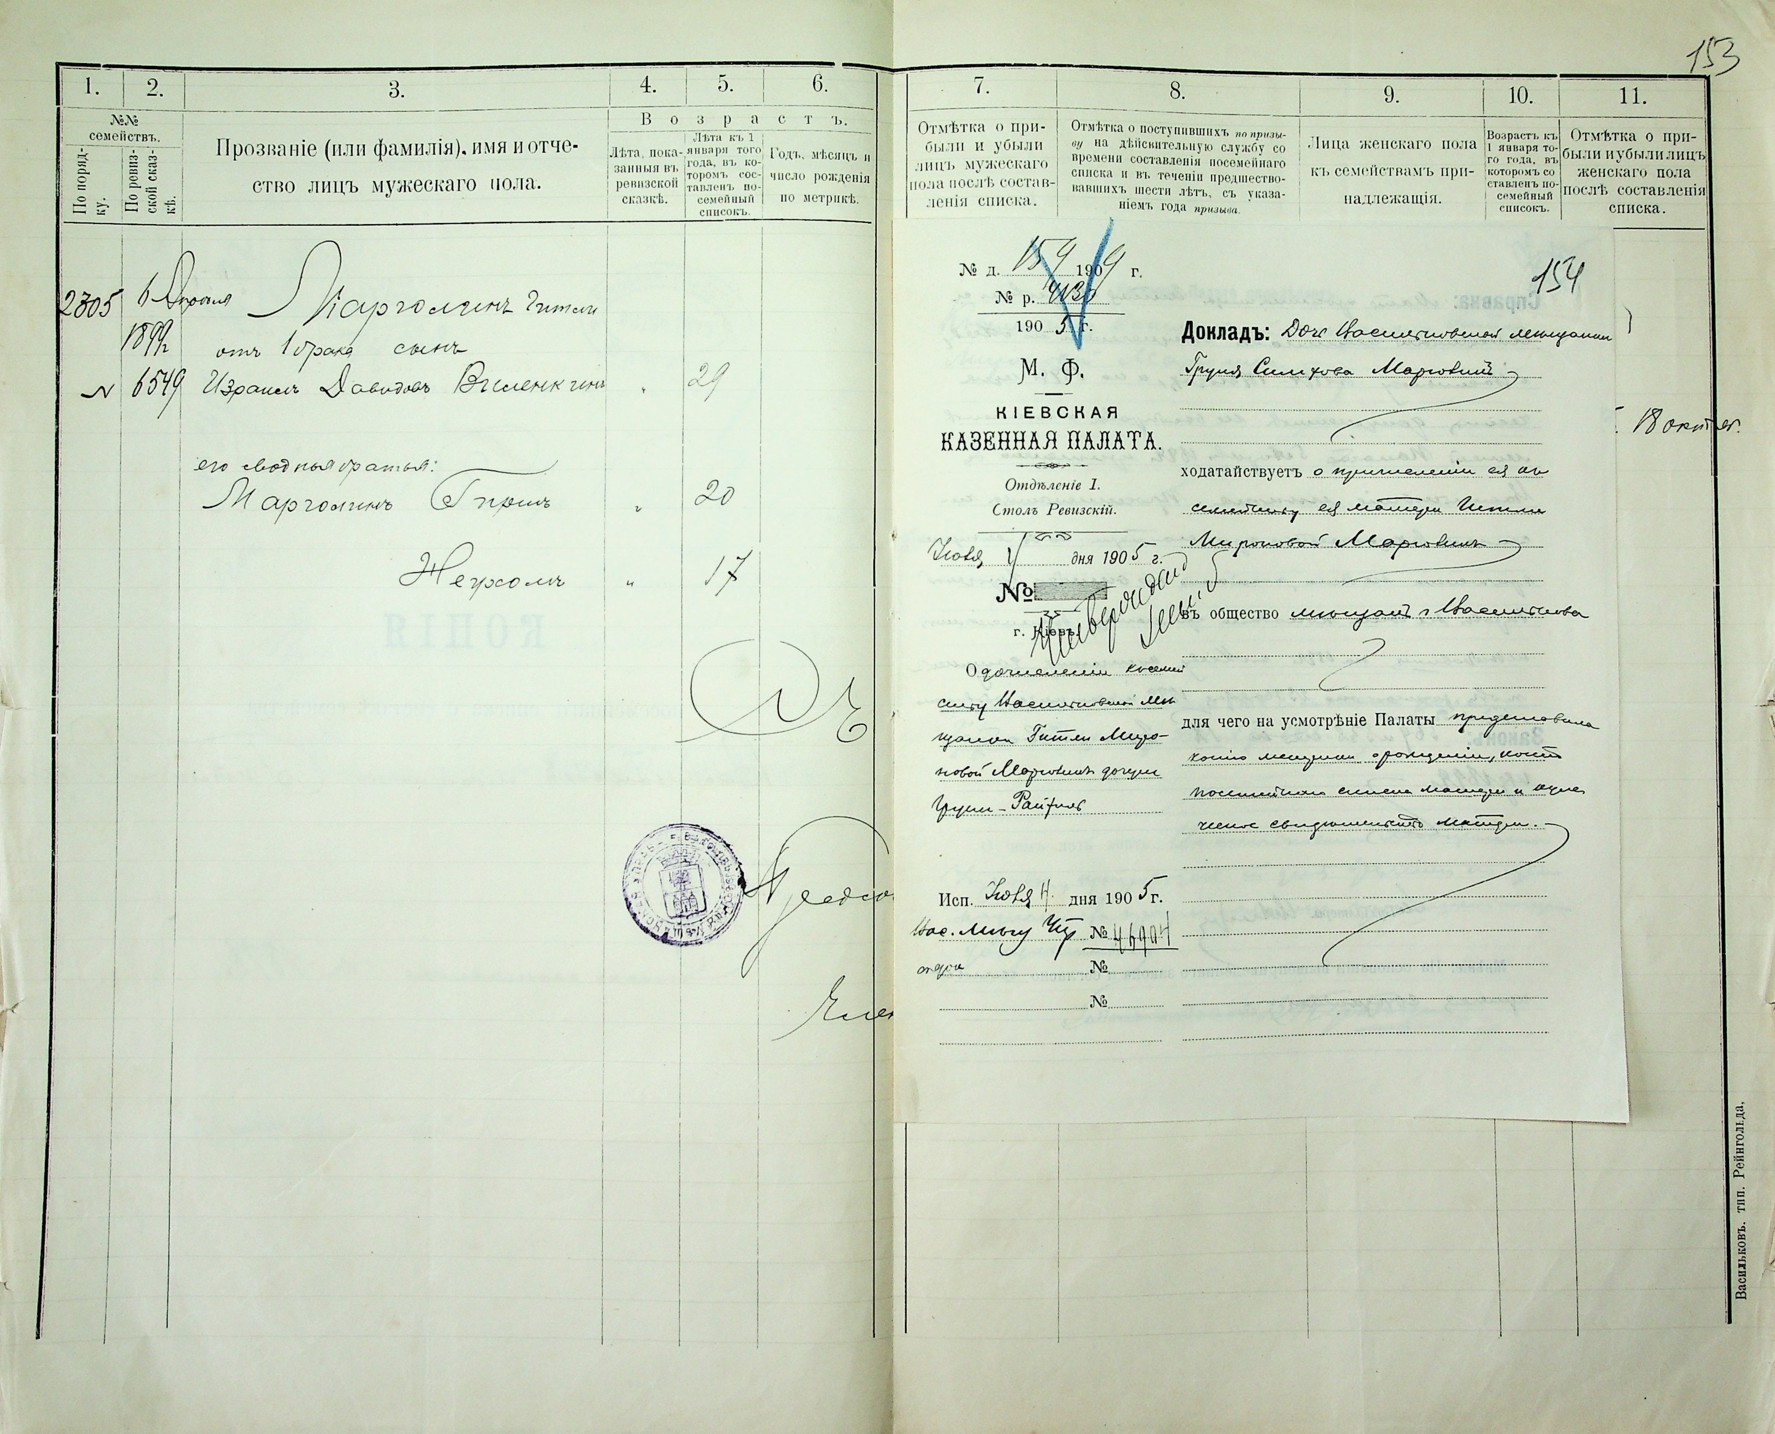 153
1.
2.
3.
4.
5.
6.
№№ семействъ.
По поряд-
ку.
По ревиз-
ской сказ-
кѣ.
Прозваніе (или фамилія), имя и отче-
ство лицъ мужескаго пола.
Возрастъ.
Лѣта, пока-
занныя въ
ревизской
сказкѣ.
Лѣта къ 1
января того
года, въ ко-
торомъ сос-
тавленъ по-
семейный
списокъ.
Годъ, мѣсяцъ и
число рожденія
по метрикѣ.
2305
6 Апрѣля
1899
№ 6549
Марголинъ Гитли
отъ 1 брака сынъ
Израиль Давидовъ Виленкинъ " 29
его сводныя братья:
Марголинъ " 20
" 17
КОПІЯ
7.
8.
9.
10.
11.
Отмѣтка о при-
были и убыли
лицъ мужескаго
пола послѣ состав-
ленія списка.
Отмѣтка о поступившихъ по призы-
ву на дѣйсвительную службу со
времени составленія посемейнаго
списка и въ теченіи предшество-
вавшихъ шести лѣтъ, съ указа-
ніемъ года призыва.
Лица женскаго пола
къ семействамъ при-
надлежащія.
Возрастъ къ
1 января то-
го года, въ
которомъ со
ставленъ по-
семейный
списокъ.
Отмѣтка о при-
были и убыли лицъ
женскаго пола
послѣ составленія
списка.
18 октяб.
154
№ д. 159 1909 г.
№ р.
1905 г.
М. Ф.
КІЕВСКАЯ
КАЗЕННАЯ ПАЛАТА.
Отдѣленіе I.
Столъ Ревизскій.
Іюня 4 дня 1905 г.
№
г. Кіевъ.
О дочисленіи къ семей
ству Васильковской мѣ
щанки Гитли Миро-
новой Марголинъ дочери
Групи-Райзли
Исп. Іюня 4 дня 1905 г.
Вас. Мѣщ. Упр № 46904
№
№
Докладъ: Дочь Васильковской мѣщанки
Груня Симхова Марголинъ
ходатайствуетъ о причисленіи ея къ
семейству ея матери Гитли
Мироновой Марголинъ
въ общество мѣщанъ г. Василькова
для чего на усмотрѣніе Палаты представила
копію метрики о рожденіи, копію
посемейнаго списка матери и
свидѣтельство матери.
Васильковъ. тип. Рейнгольда.